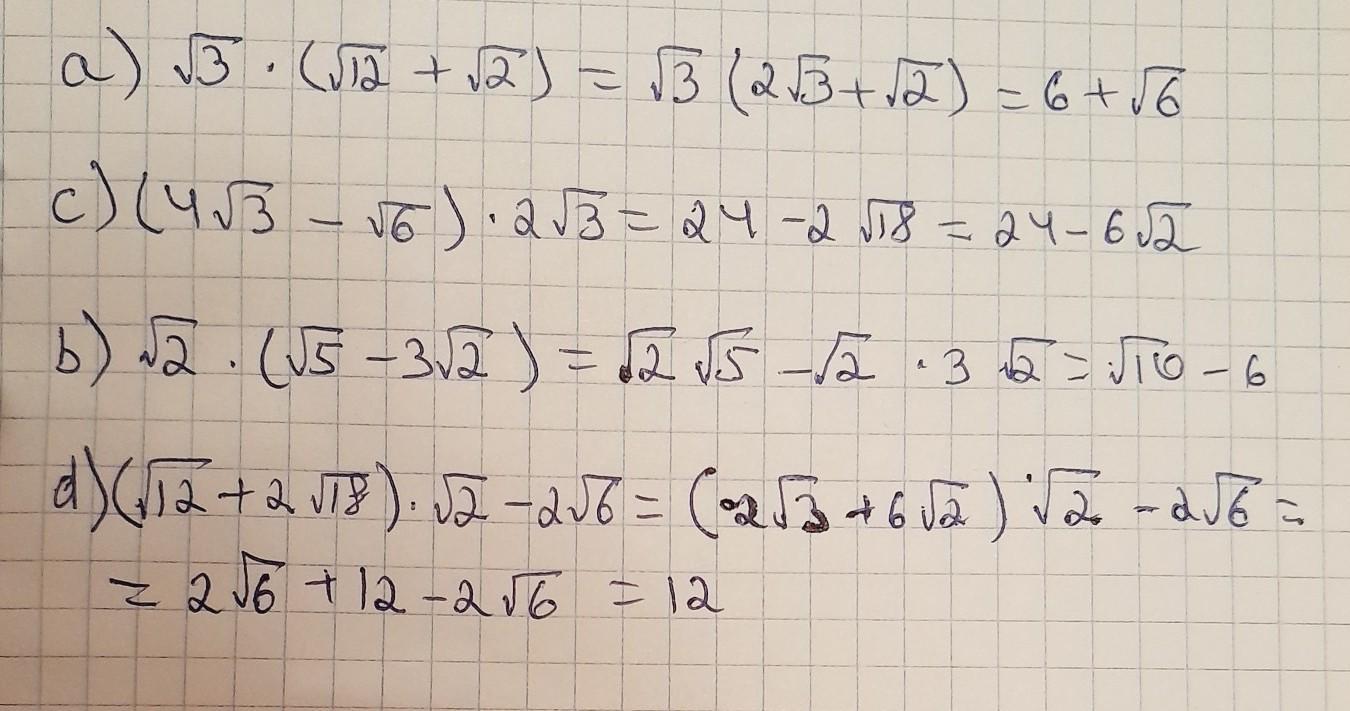 a) √3 · (√12 + √2) = √3 (2√3 + √2) = 6 + √6
c) (4√3 - √6) · 2√3 = 24 - 2√18 = 24 - 6√2
b) √2 · (√5 - 3√2) = √2 √5 - √2 · 3 √2 = √10 - 6
d) (√12 + 2√18) · √2 - 2√6 = (2√3 + 6√2) · √2 - 2√6 =
= 2√6 + 12 - 2√6 = 12